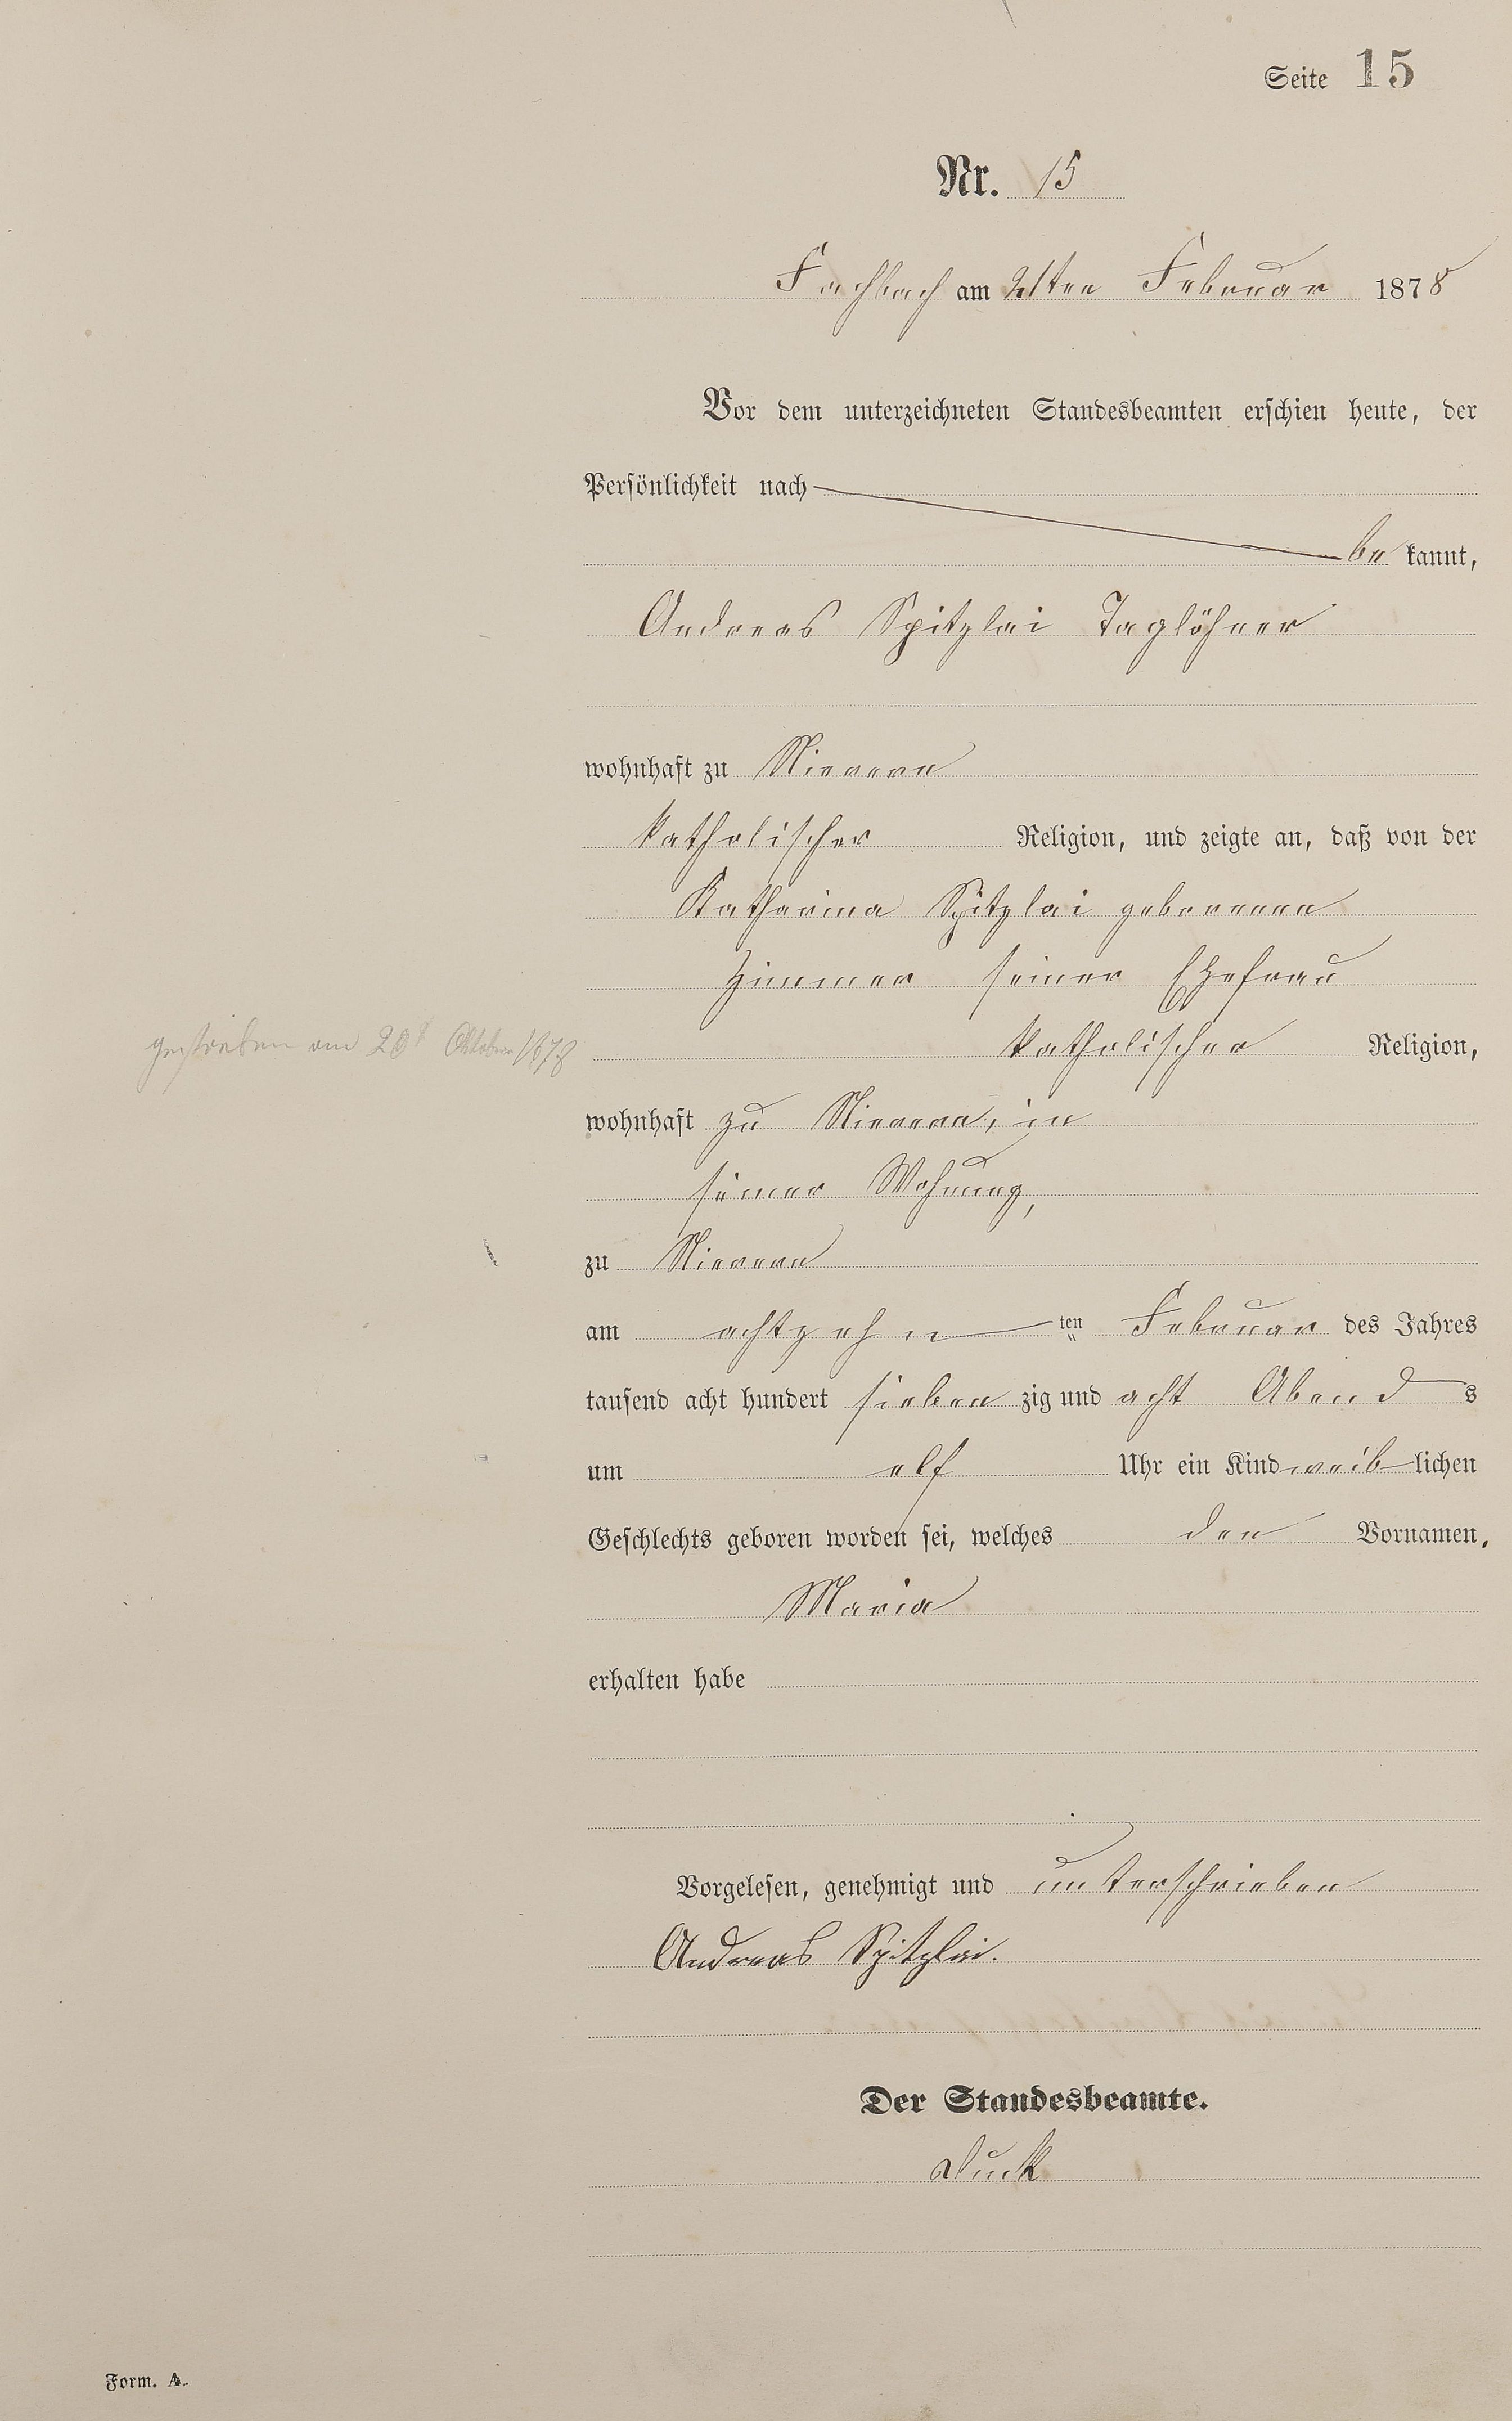 Seite 15
Nr. 15
Fachbach am 21ten Februar 1878
Vor dem unterzeichneten Standesbeamten erschien heute, der
Persönlichkeit nach
be kannt,
Andreas Spitzlei Taglöhner
wohnhaft zu Nievern
katholischer Religion, und zeigte an, daß von der
Katharina Spitzlei geborenen
Zimmer seiner Ehefrau
gestorben am 20t Oktober 1878
katholischer Religion,
wohnhaft zu Nievern, in
seiner Wohnung,
zu Nievern
am achtzehn ten Februar des Jahres
tausend acht hundert sieben zig und acht Abend s
um elf Uhr ein Kind weib lichen
Geschlechts geboren worden sei, welches den Vornamen
Maria
erhalten habe
Vorgelesen, genehmigt und unterschrieben
Andreas Spitzlei.
Der Standesbeamte.
Form. A.